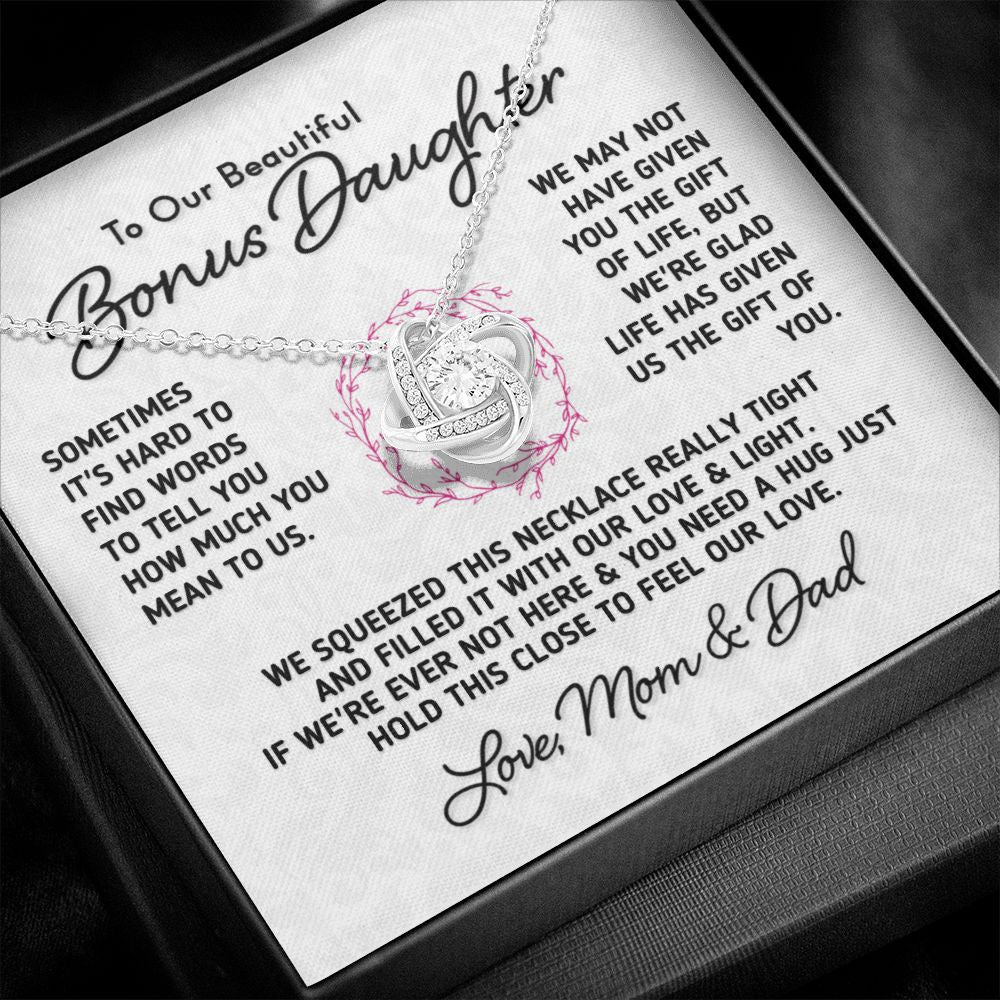 To Our Beautiful
Bonus Daughter
SOMETIMES
IT'S HARD TO
FIND WORDS
TO TELL YOU
HOW MUCH YOU
MEAN TO US.
WE MAY NOT
HAVE GIVEN
YOU THE GIFT
OF LIFE, BUT
WE'RE GLAD
LIFE HAS GIVEN
US THE GIFT OF
YOU.
WE SQUEEZED THIS NECKLACE REALLY TIGHT
AND FILLED IT WITH OUR LOVE & LIGHT.
IF WE'RE EVER NOT HERE & YOU NEED A HUG JUST
HOLD THIS CLOSE TO FEEL OUR LOVE.
Love, Mom & Dad